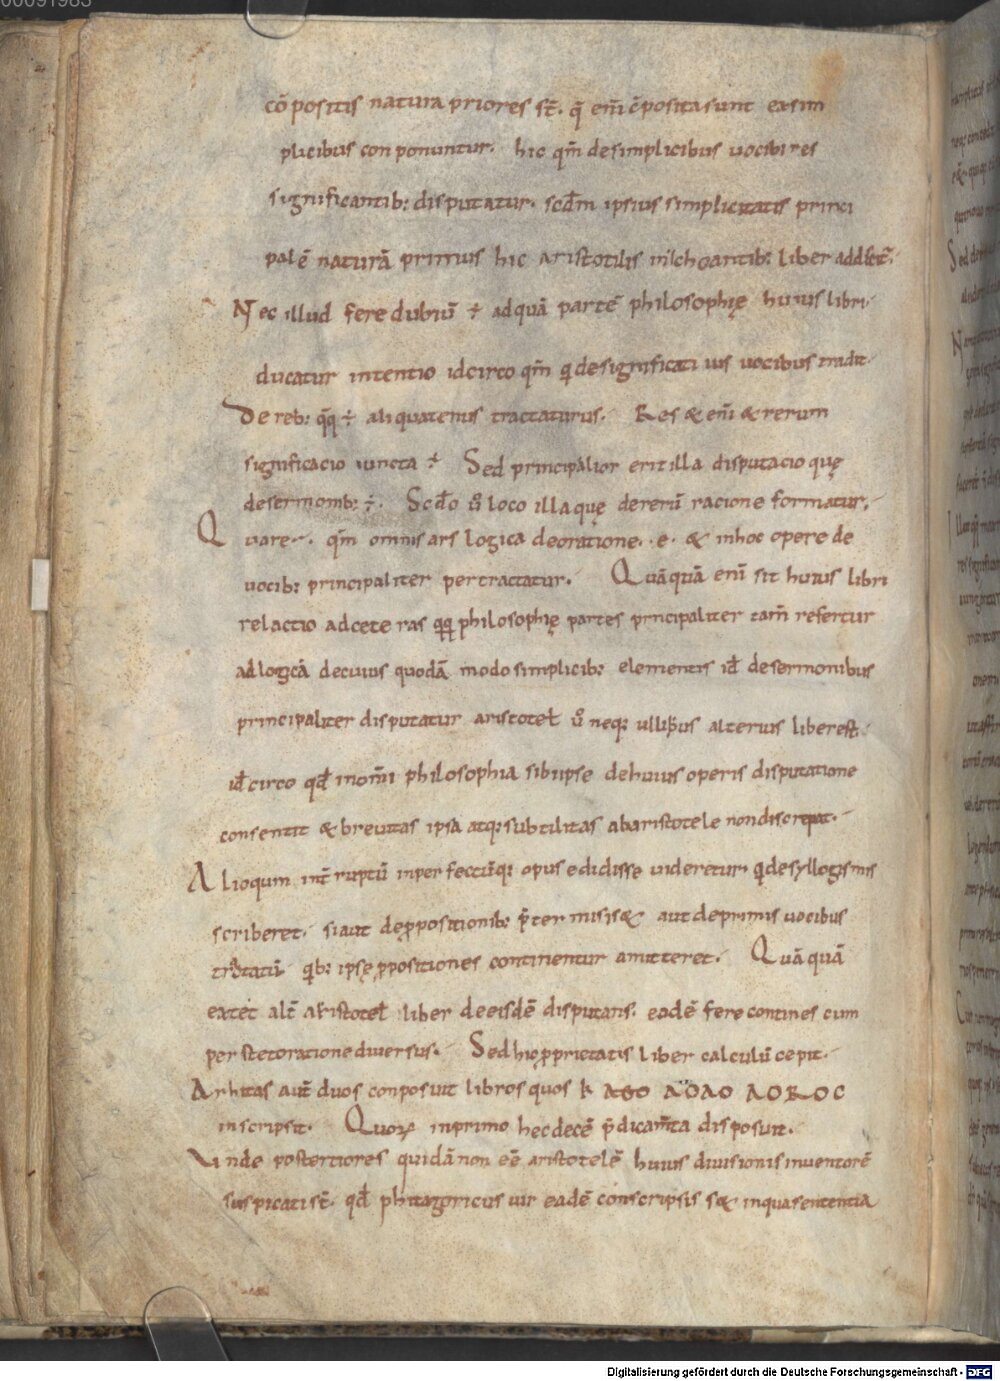 00091983
cō positis natura priores st̄. q̄ eni̅ c̄posita sunt ex sim
plicibus con ponuntur. hic qm̄ de simplicibus uocib; res
significantib: disputatur. scd̄m ipsius simplicitatis princi
palē naturā primus hic aristotilis inchoantib: liber
Nec illud fere dubiū ÷ ad quā partē philosophię huius libri
ducatur intentio idcirco qm̄ qui de significatiuis uocibus tradit
De reb: q̄q; ÷ aliquatenus tractaturus. Res & eni̅ & rerum
significacio iuncta ÷ Sed principalior erit illa disputacio quę
de sermonib: ÷. Scd̄o ů loco illa quę de rerū racione formatur.
Quare. qm̄ omnis ars logica de oratione. e. & in hoc opere de
uocib: principaliter pertractatur. Quāquā eni̅ sit huius libri
relactio ad ceteras qq philosophię partes principaliter tam̄ refertur
ad logicā de cuius quodā modo simplicib: elementis id̄ de sermonibus
principaliter disputatur aristotel̄ ů neq; ullius alterius liber est.
idcirco qd̄ in om̄i philosophia sibi ipse de huius operis disputatione
consentit & breuitas ipsa atq: subtilitas ab aristotele non discrepat.
Alioqum int̄ ruptū inperfectūq: opus edidisse uideretur q de syllogismis
scriberet. si aut de ppositionib: p̄termisis& aut de primis uocibus
tractatū quib: ipsę ppositiones continentur amitteret. Quāquā
extet alt̄ aristotel̄ liber de eisdē disputans. eadē fere contines cum
per st& oratione diuersus. Sed hic pprietatis liber calculū cepit.
Arhitas aut̄ duos conposuit libros quos K
inscripsit. Quoꝝ in primo hec decē p̄dicam̄ta disposuit.
Vnde posteriores quidā non eē aristotelē huius diuisionis inuentorē
suspicati st̄. qd̄ phitagoricus uir eadē conscripsis s& in qua sententia
Digitalisierung gefördert durch die Deutsche Forschungsgemeinschaft - DFG